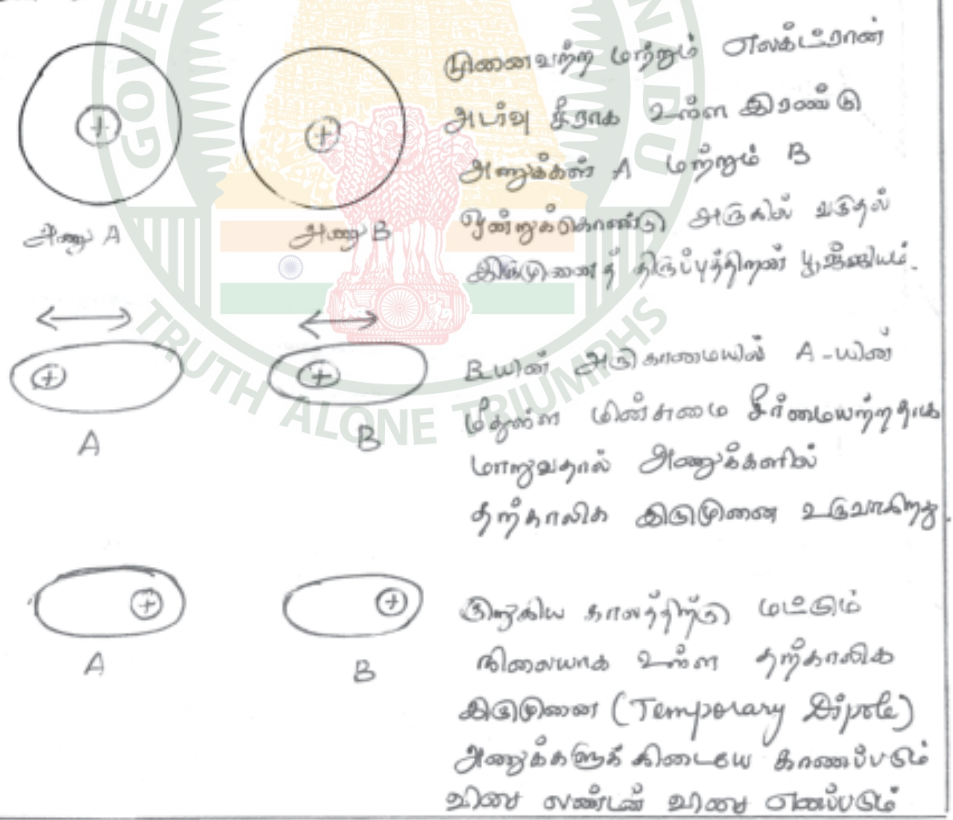 முனைவற்ற மற்றும் எலக்ட்ரான்
அடர்வு சீராக உள்ள இரண்டு
அணுக்கள் A மற்றும் B
ஒன்றுக்கொண்டு அருகில் வருதல்
இருமுனைத் திருப்புத்திறன் பூஜ்ஜியம்.
+
+
அணு A
அணு B
GOVE
NADU
TRUTH ALONE TRIUMPHS
B யின் அருகாமையில் A-யின்
மீதுள்ள மின்சுமை சீர்மையற்றதாக
மாறுவதால் அணுக்களில்
தற்காலிக இருமுனை உருவாகிறது.
+
+
A
B
குறுகிய காலத்திற்கு மட்டும்
நிலையாக உள்ள தற்காலிக
இருமுனை (Temporary Dipole)
அணுக்களுக் கிடையே காணப்படும்
விசை லண்டன் விசை எனப்படும்
+
+
A
B